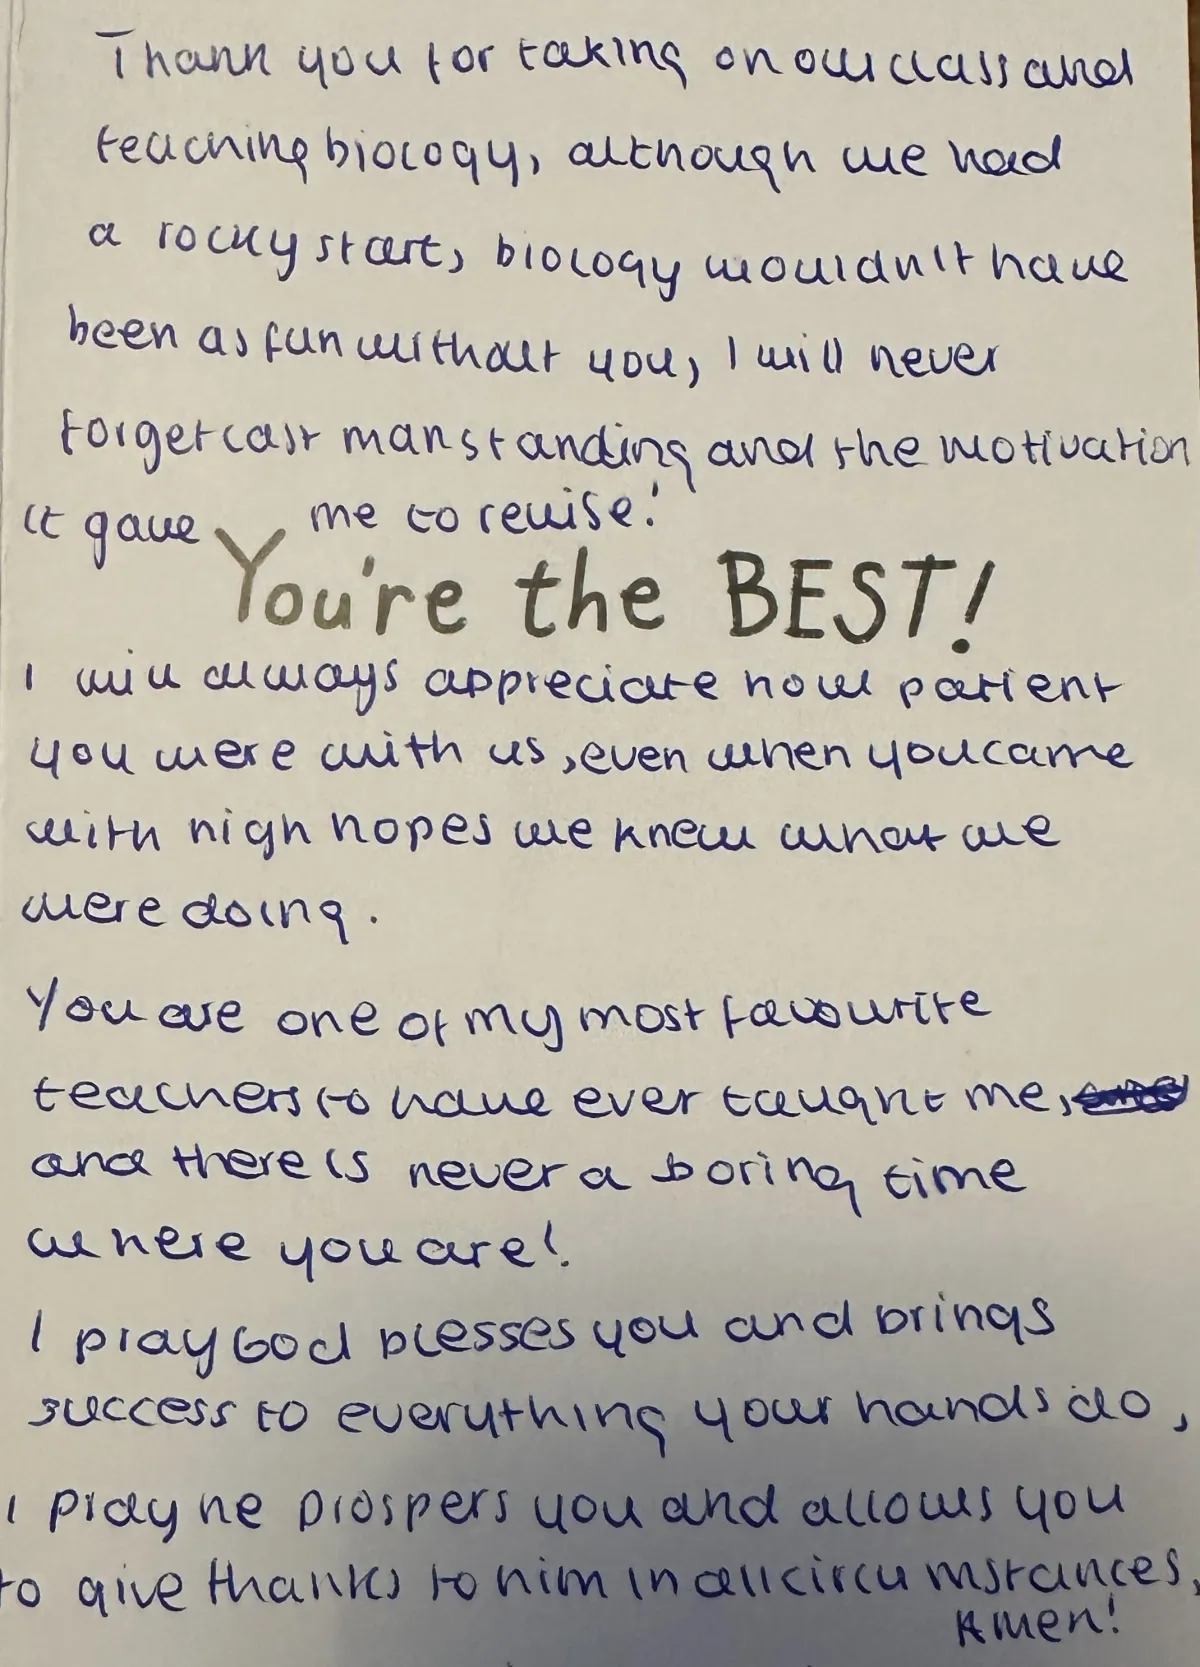 Thank you for taking on our class and
teaching biology, although we had
a rocky start, biology wouldn't have
been as fun without you, I will never
forget last man standing and the motivation
it gave me to revise!
You're the BEST!
I will always appreciate how patient
you were with us, even when you came
with high hopes we knew what we
were doing.
You are one of my most favourite
teachers to have ever taught me,
and there is never a boring time
where you are!
I pray God blesses you and brings
success to everything your hands do,
I pray he prospers you and allows you
to give thanks to him in all circumstances,
Amen!